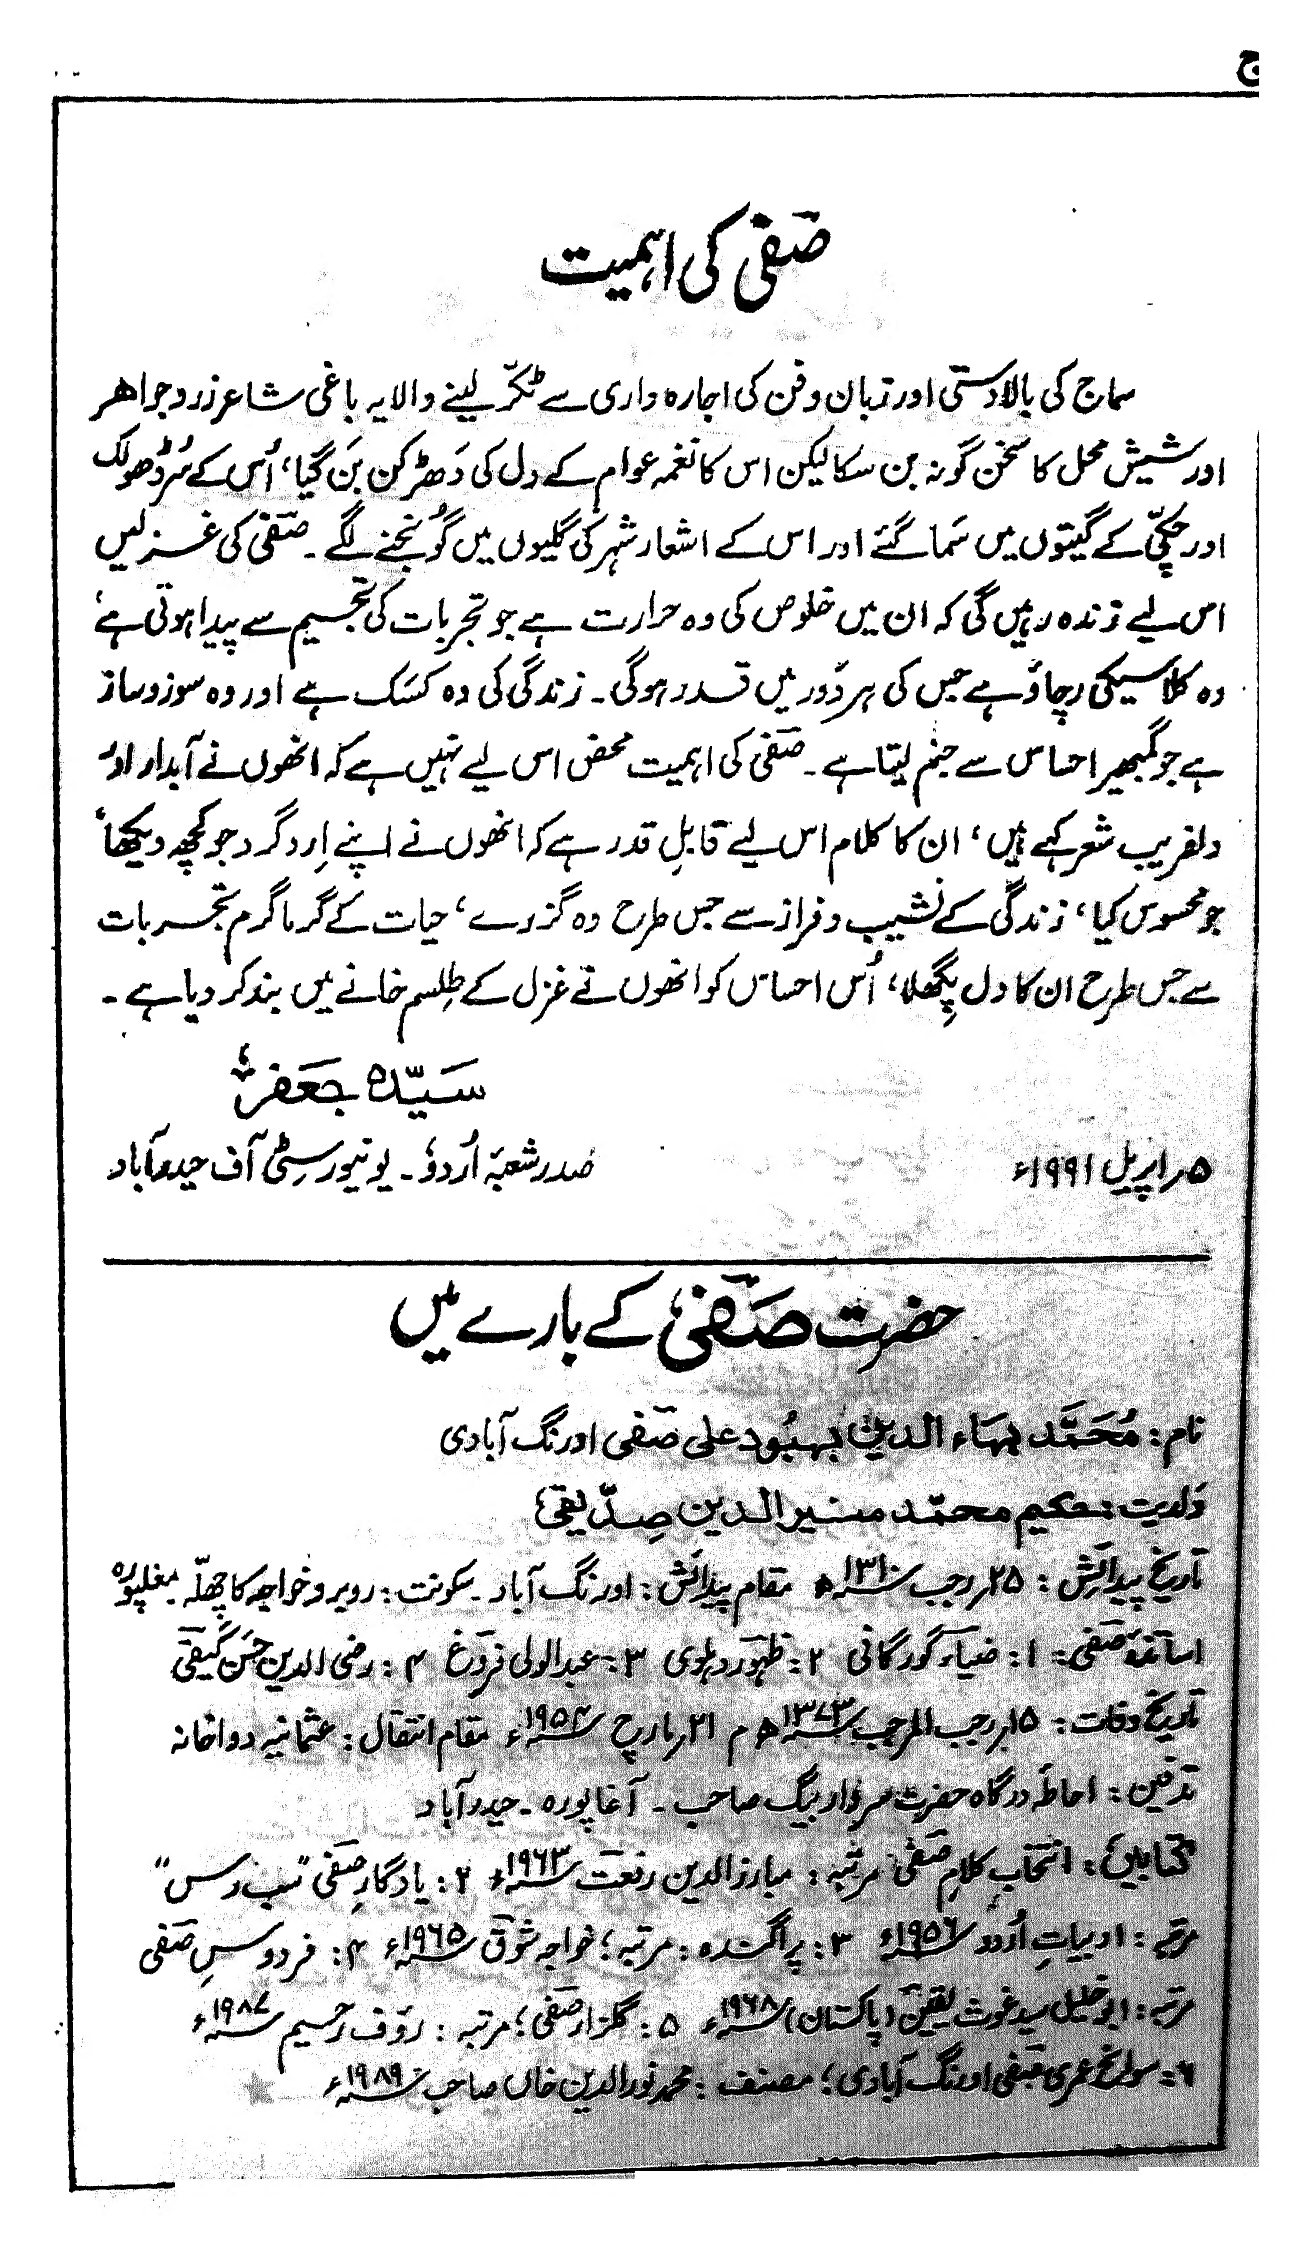 ج
صفی کی اہمیت
سماج کی بالادستی اور زبان و فن کی اجارہ داری سے ٹکّر لینے والا یہ باغی شاعر زر و جواہر
اور شیش محل کا سخن گو نہ بن سکا لیکن اس کا نغمہ عوام کے دل کی دَھڑکن بَن گیا، اُس کے سُر ڈھولک
اور چکّی کے گیتوں میں سَما گئے اور اس کے اشعار شہر کی گلیوں میں گونجنے لگے ۔ صفی کی غزلیں
اس لیے زندہ رہیں گی کہ ان میں خلوص کی وہ حرارت ہے جو تجربات کی تجسیم سے پیدا ہوتی ہے،
وہ کلاسیکی رچاؤ ہے جس کی ہر دَور میں قدر ہوگی ۔ زندگی کی وہ کسَک ہے اور وہ سوز و ساز
ہے جو گمبھیر احساس سے جنم لیتا ہے ۔ صفی کی اہمیت محض اس لیے نہیں ہے کہ انھوں نے آبدار اور
دلفریب شعر کہے ہیں، ان کا کلام اس لیے قابلِ قدر ہے کہ انھوں نے اپنے اِرد گرد جو کچھ دیکھا،
جو محسوس کیا، زندگی کے نشیب و فراز سے جس طرح وہ گزرے، حیات کے گرما گرم تجربات
سے جس طرح ان کا دل پگھلا، اُس احساس کو انھوں نے غزل کے طِلسم خانے میں بند کر دیا ہے ۔
سَیّدہ جَعفر
۵ر اپریل ۱۹۹۱ء صَدر شعبۂ اُردو ۔ یونیورسٹی آف حیدرآباد
حضرت صَفی کے بارے میں
نام : مُحَمَّد بہَاء الدین بہبُود علی صفی اورنگ آبادی
ولدیت : حکیم محمّد منیر الدین صِدّیقی
تاریخ پیدائش : ۲۵ر رجب ۱۳۱۰ھ مقام پیدائش : اورنگ آباد ۔ سکونت : روبرو خواجہ کا چھلّہ ۔ مغلپورہ
اساتذۂ صفی : ۱ : ضیاء گورگانی ۲ : ظہور دہلوی ۳ : عبدالولی فروغ ۴ : رضی الدین حسن کیفی
تاریخ وفات : ۱۵ر رجب المرجب ۱۳۷۳ھ م ۲۱ر مارچ ۱۹۵۴ء مقام انتقال : عثمانیہ دواخانہ
تدفین : احاطہ درگاہ حضرت سردار بیگ صاحب ۔ آغاپورہ ۔ حیدرآباد
کتابیں : انتخابِ کلامِ صفی مرتبہ : مبارزالدین رفعت ۱۹۶۳ء ۲ : یادگارِ صفی "سب رس"
مرتبہ : ادبیاتِ اُردو ۱۹۵۶ء ۳ : پراگندہ : مرتبہ ؛ خواجہ شوق ۱۹۶۵ء ۴ : فردوسِ صفی
مرتبہ : ابو خلیل سید غوث یقین (پاکستان) ۱۹۶۸ء ۵ : گلزارِ صفی ؛ مرتبہ : رؤف رحیم ۱۹۸۷ء
۶ : سوانح عمری صفی اورنگ آبادی ؛ مصنف : محمد نورالدین خاں صاحب ۱۹۸۹ء